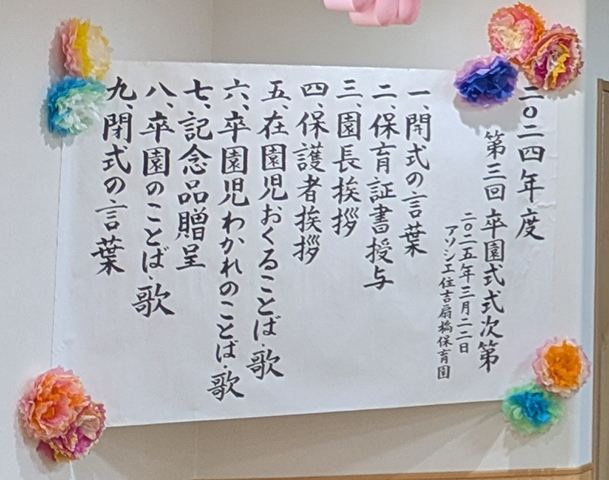 二〇二四年度
第三回 卒園式式次第
二〇二五年三月二二日
アソシエ住吉扇橋保育園
一、開式の言葉
二、保育証書授与
三、園長挨拶
四、保護者挨拶
五、在園児おくることば・歌
六、卒園児わかれのことば・歌
七、記念品贈呈
八、卒園のことば・歌
九、閉式の言葉